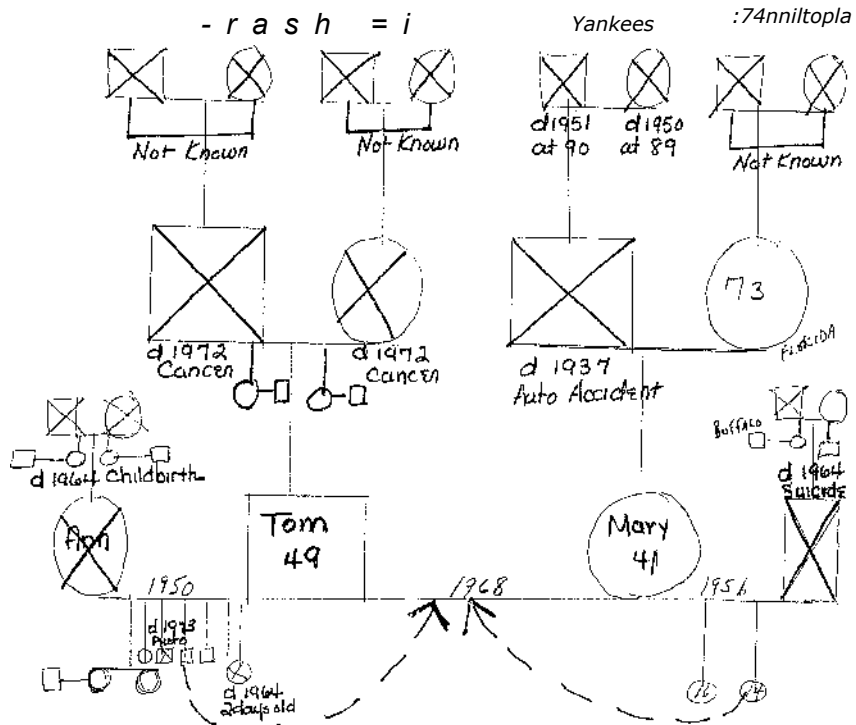 - r a s h = i
Yankees
:74nniltopla
Not Known
Not Known
d 1951
at 90
d 1950
at 89
Not Known
73
d 1972
Cancer
d 1972
Cancer
FLORIDA
d 1937
Auto Accident
BUFFALO
d 1964 Childbirth
d 1964
Suicide
Ann
Tom
49
Mary
41
1950
1968
1956
d 1973
Auto
16
14
d 1964
2 days old